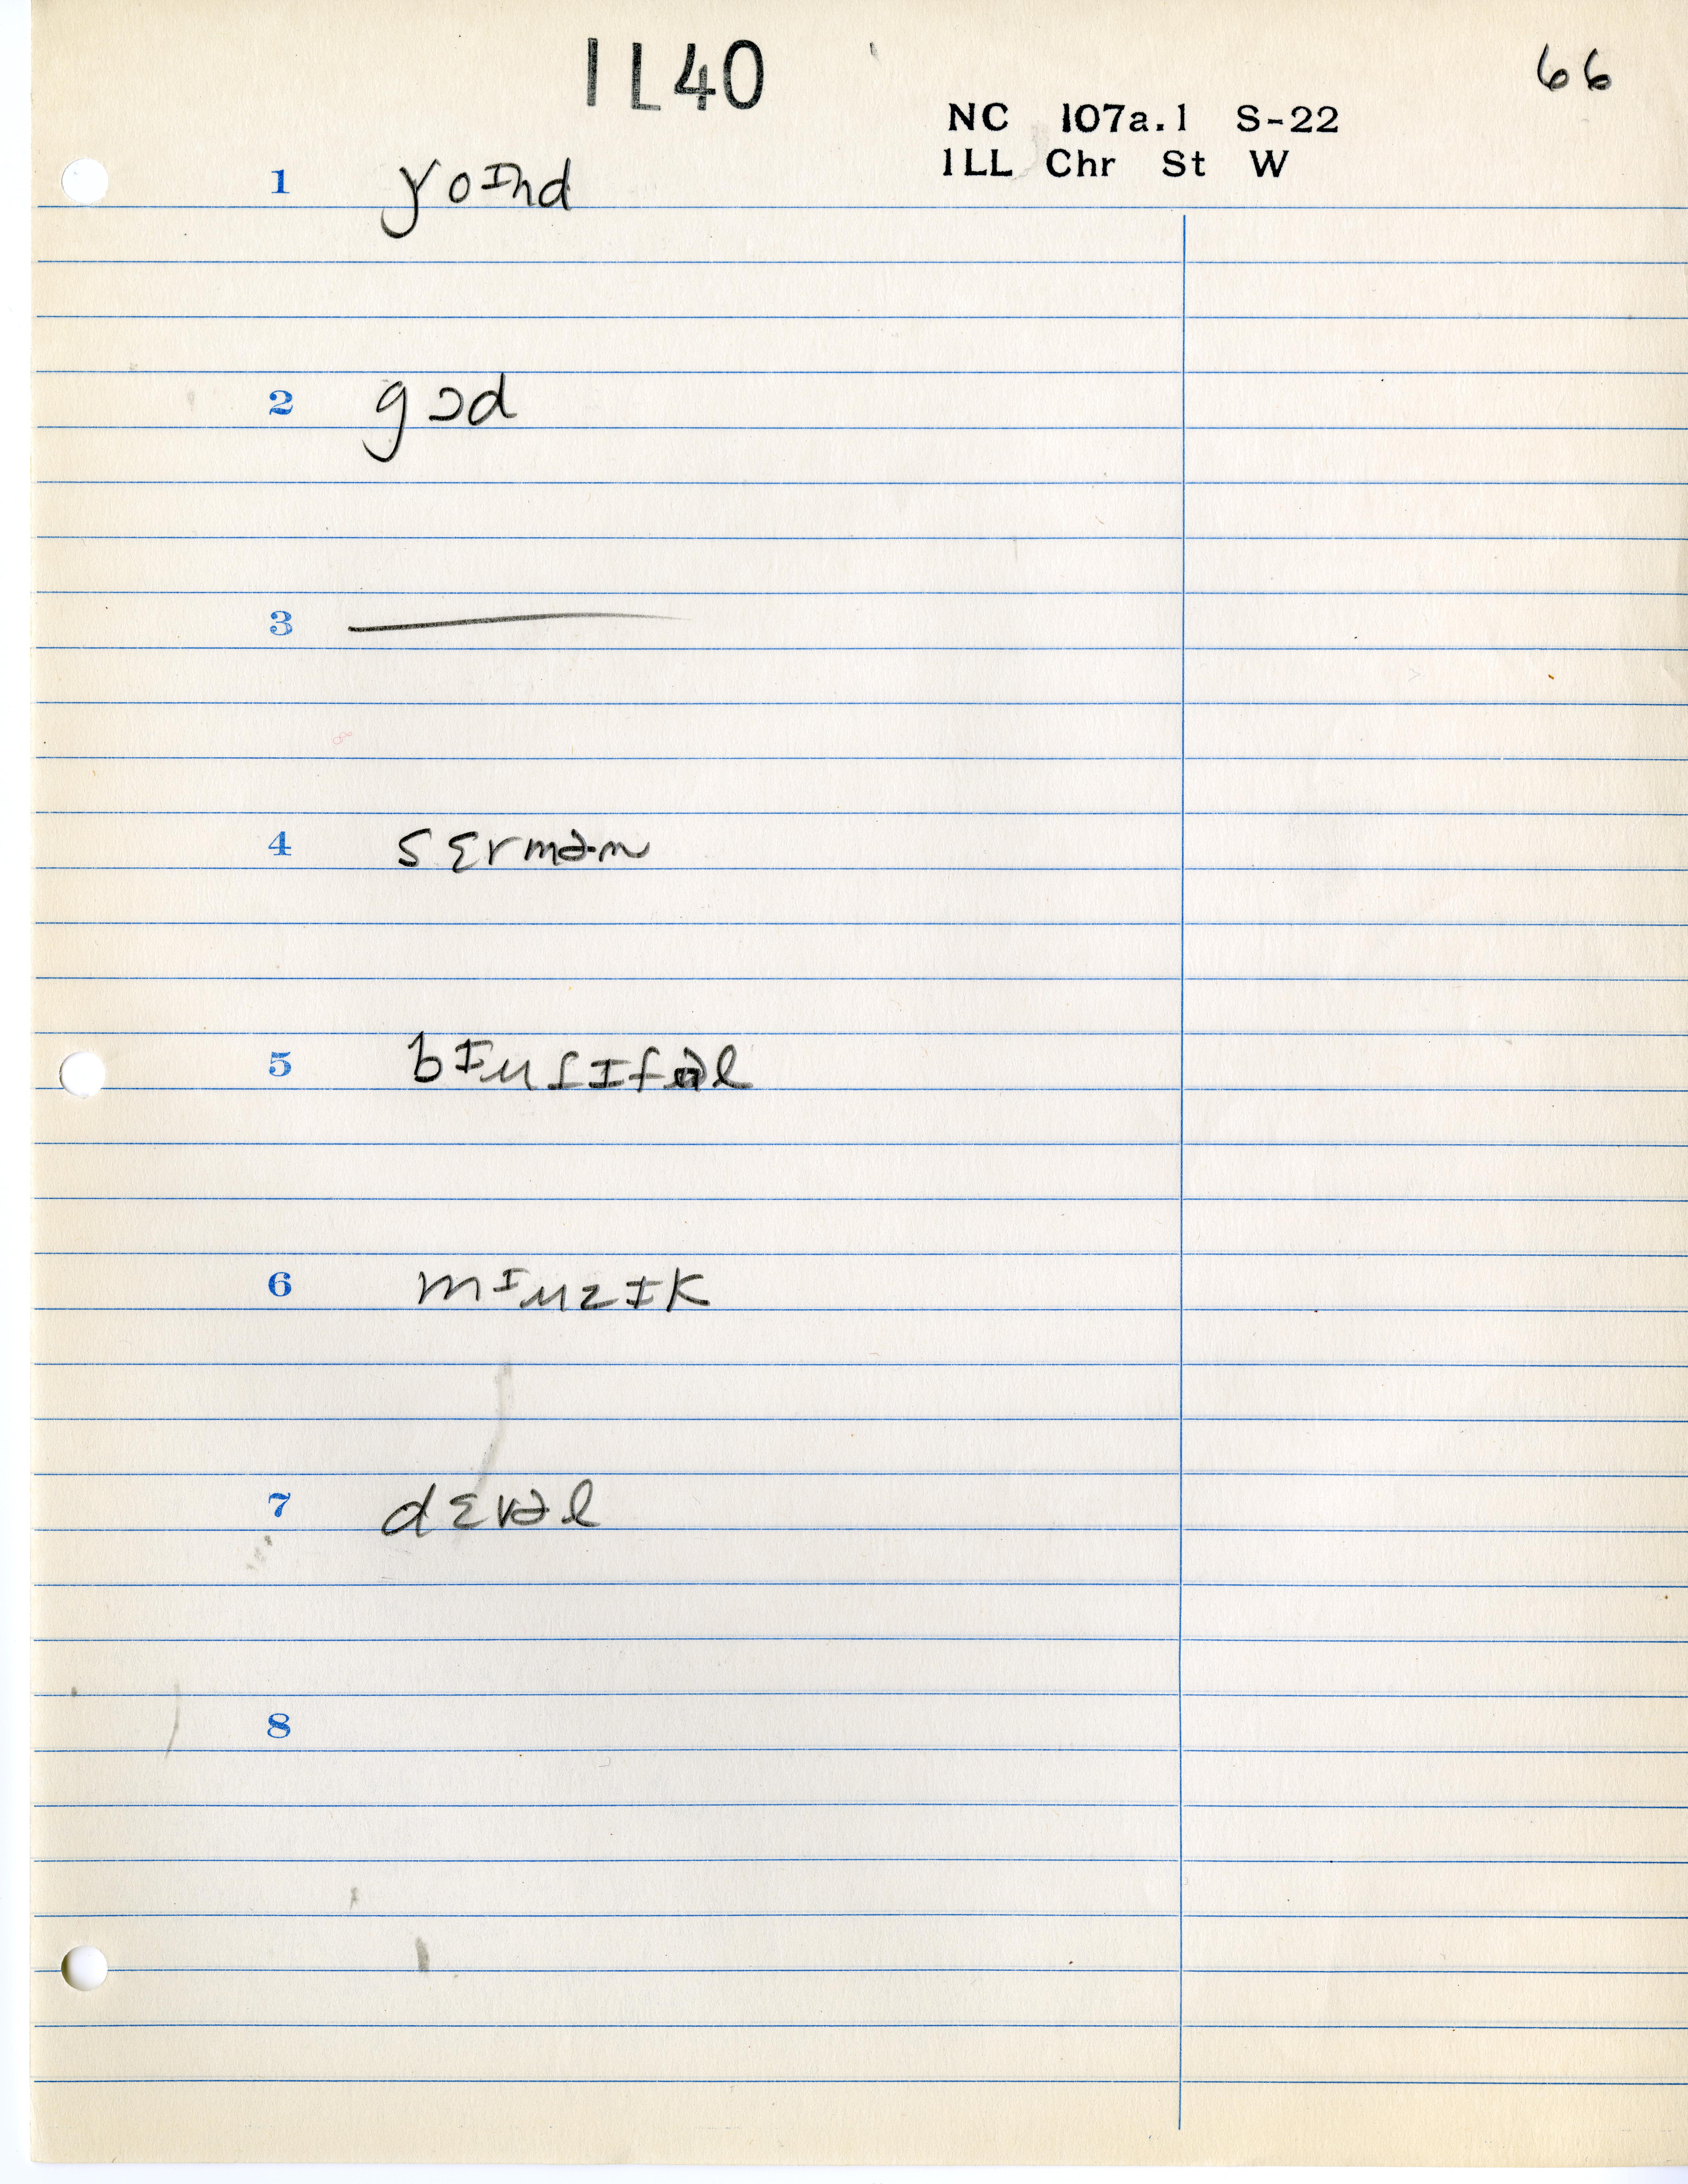 1L40
66
NC 107a.1 S-22
1LL Chr St W
1 ɣoɪnd
2 gɔd
3 —
4 sɛrmən
5 bɪuɾɪfəl
6 mɪuzɪk
7 dɛvəl
8